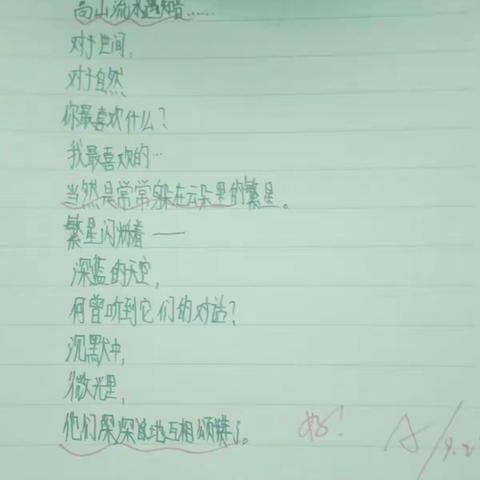 高山流水遇知音……
对于世间,
对于自然
你最喜欢什么?
我最喜欢的…
当然是常常躲在云朵里的繁星。
繁星闪烁着——
深蓝的天空,
何曾听到它们的对话?
沉默中,
微光里,
他们深深地互相颂赞了。
好! A/9.2